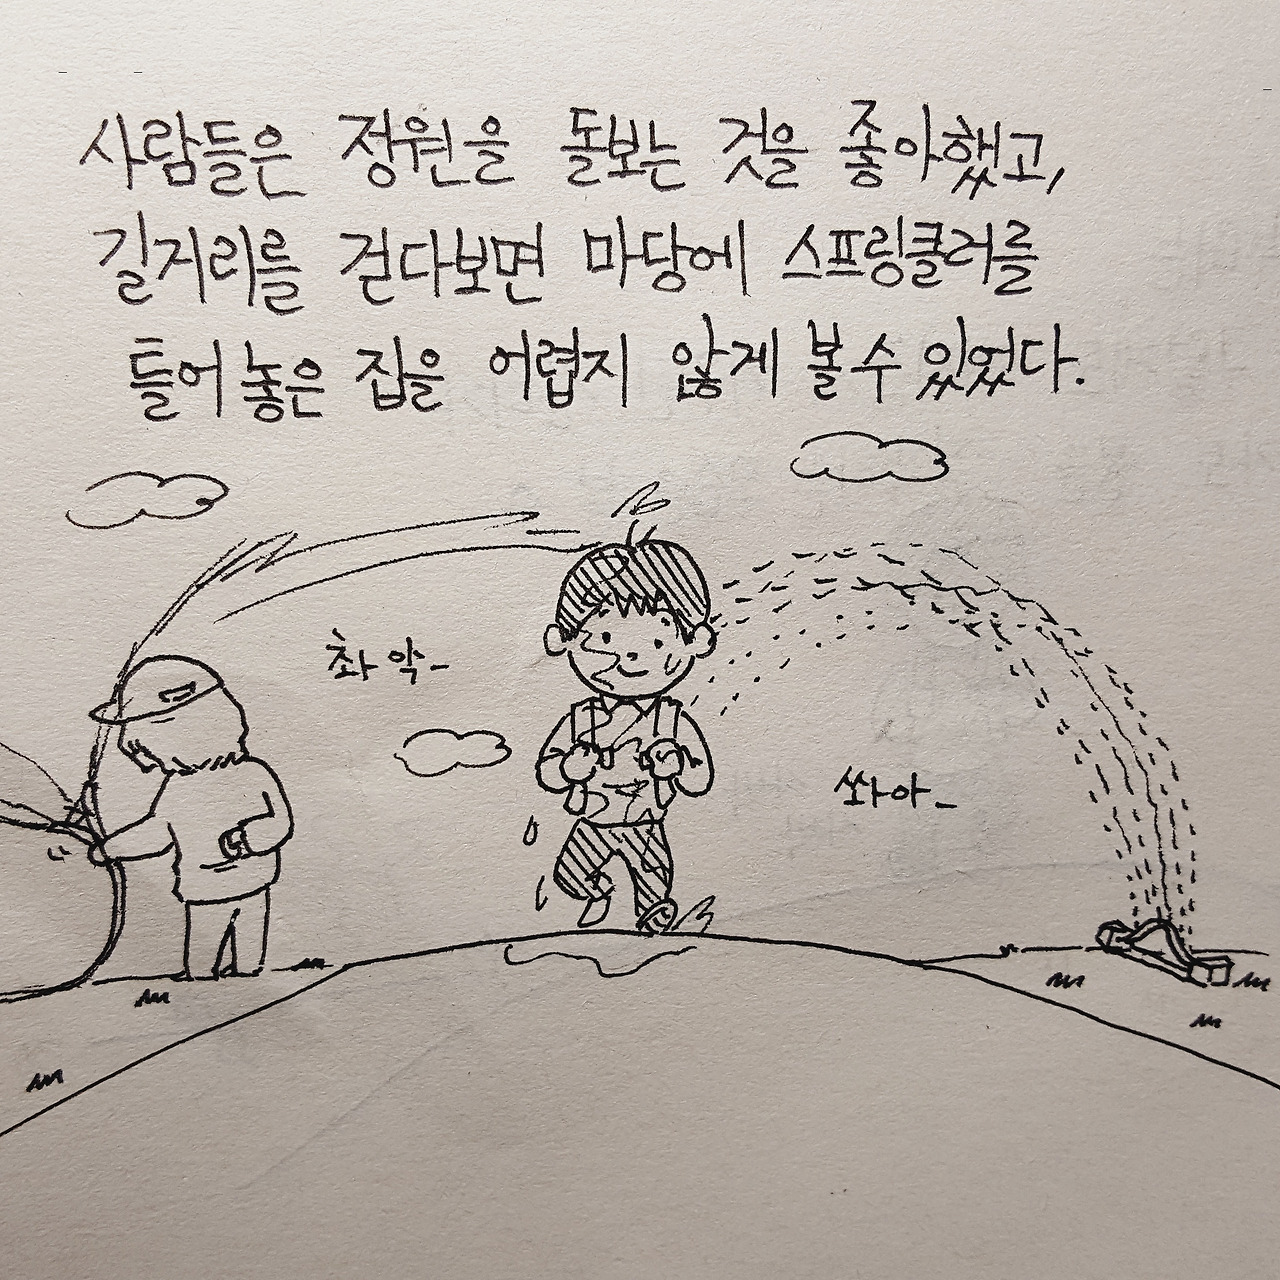 사람들은 정원을 돌보는 것을 좋아했고,
길거리를 걷다보면 마당에 스프링클러를
틀어 놓은 집을 어렵지 않게 볼 수 있었다.
촤악_
쏴아_